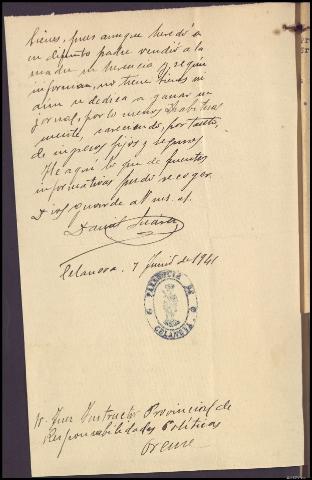 bienes, pues aunque heredó a
su difunto padre vendió a la
madre su herencia y, según
informan, no tiene bienes ni
aun se dedica a ganar un
jornal, por lo menos habitual
mente, careciendo, por tanto,
de ingresos fijos y seguros.
He aquí lo que de fuentes
informativas pude recoger.
Dios guarde a V. ms. as.
Daniel Suárez
Celanova, 7 Junio de 1941
PARROQUIA DE
CELANOVA
Sr. Juez Instructor Provincial de
Responsabilidades Políticas
Orense